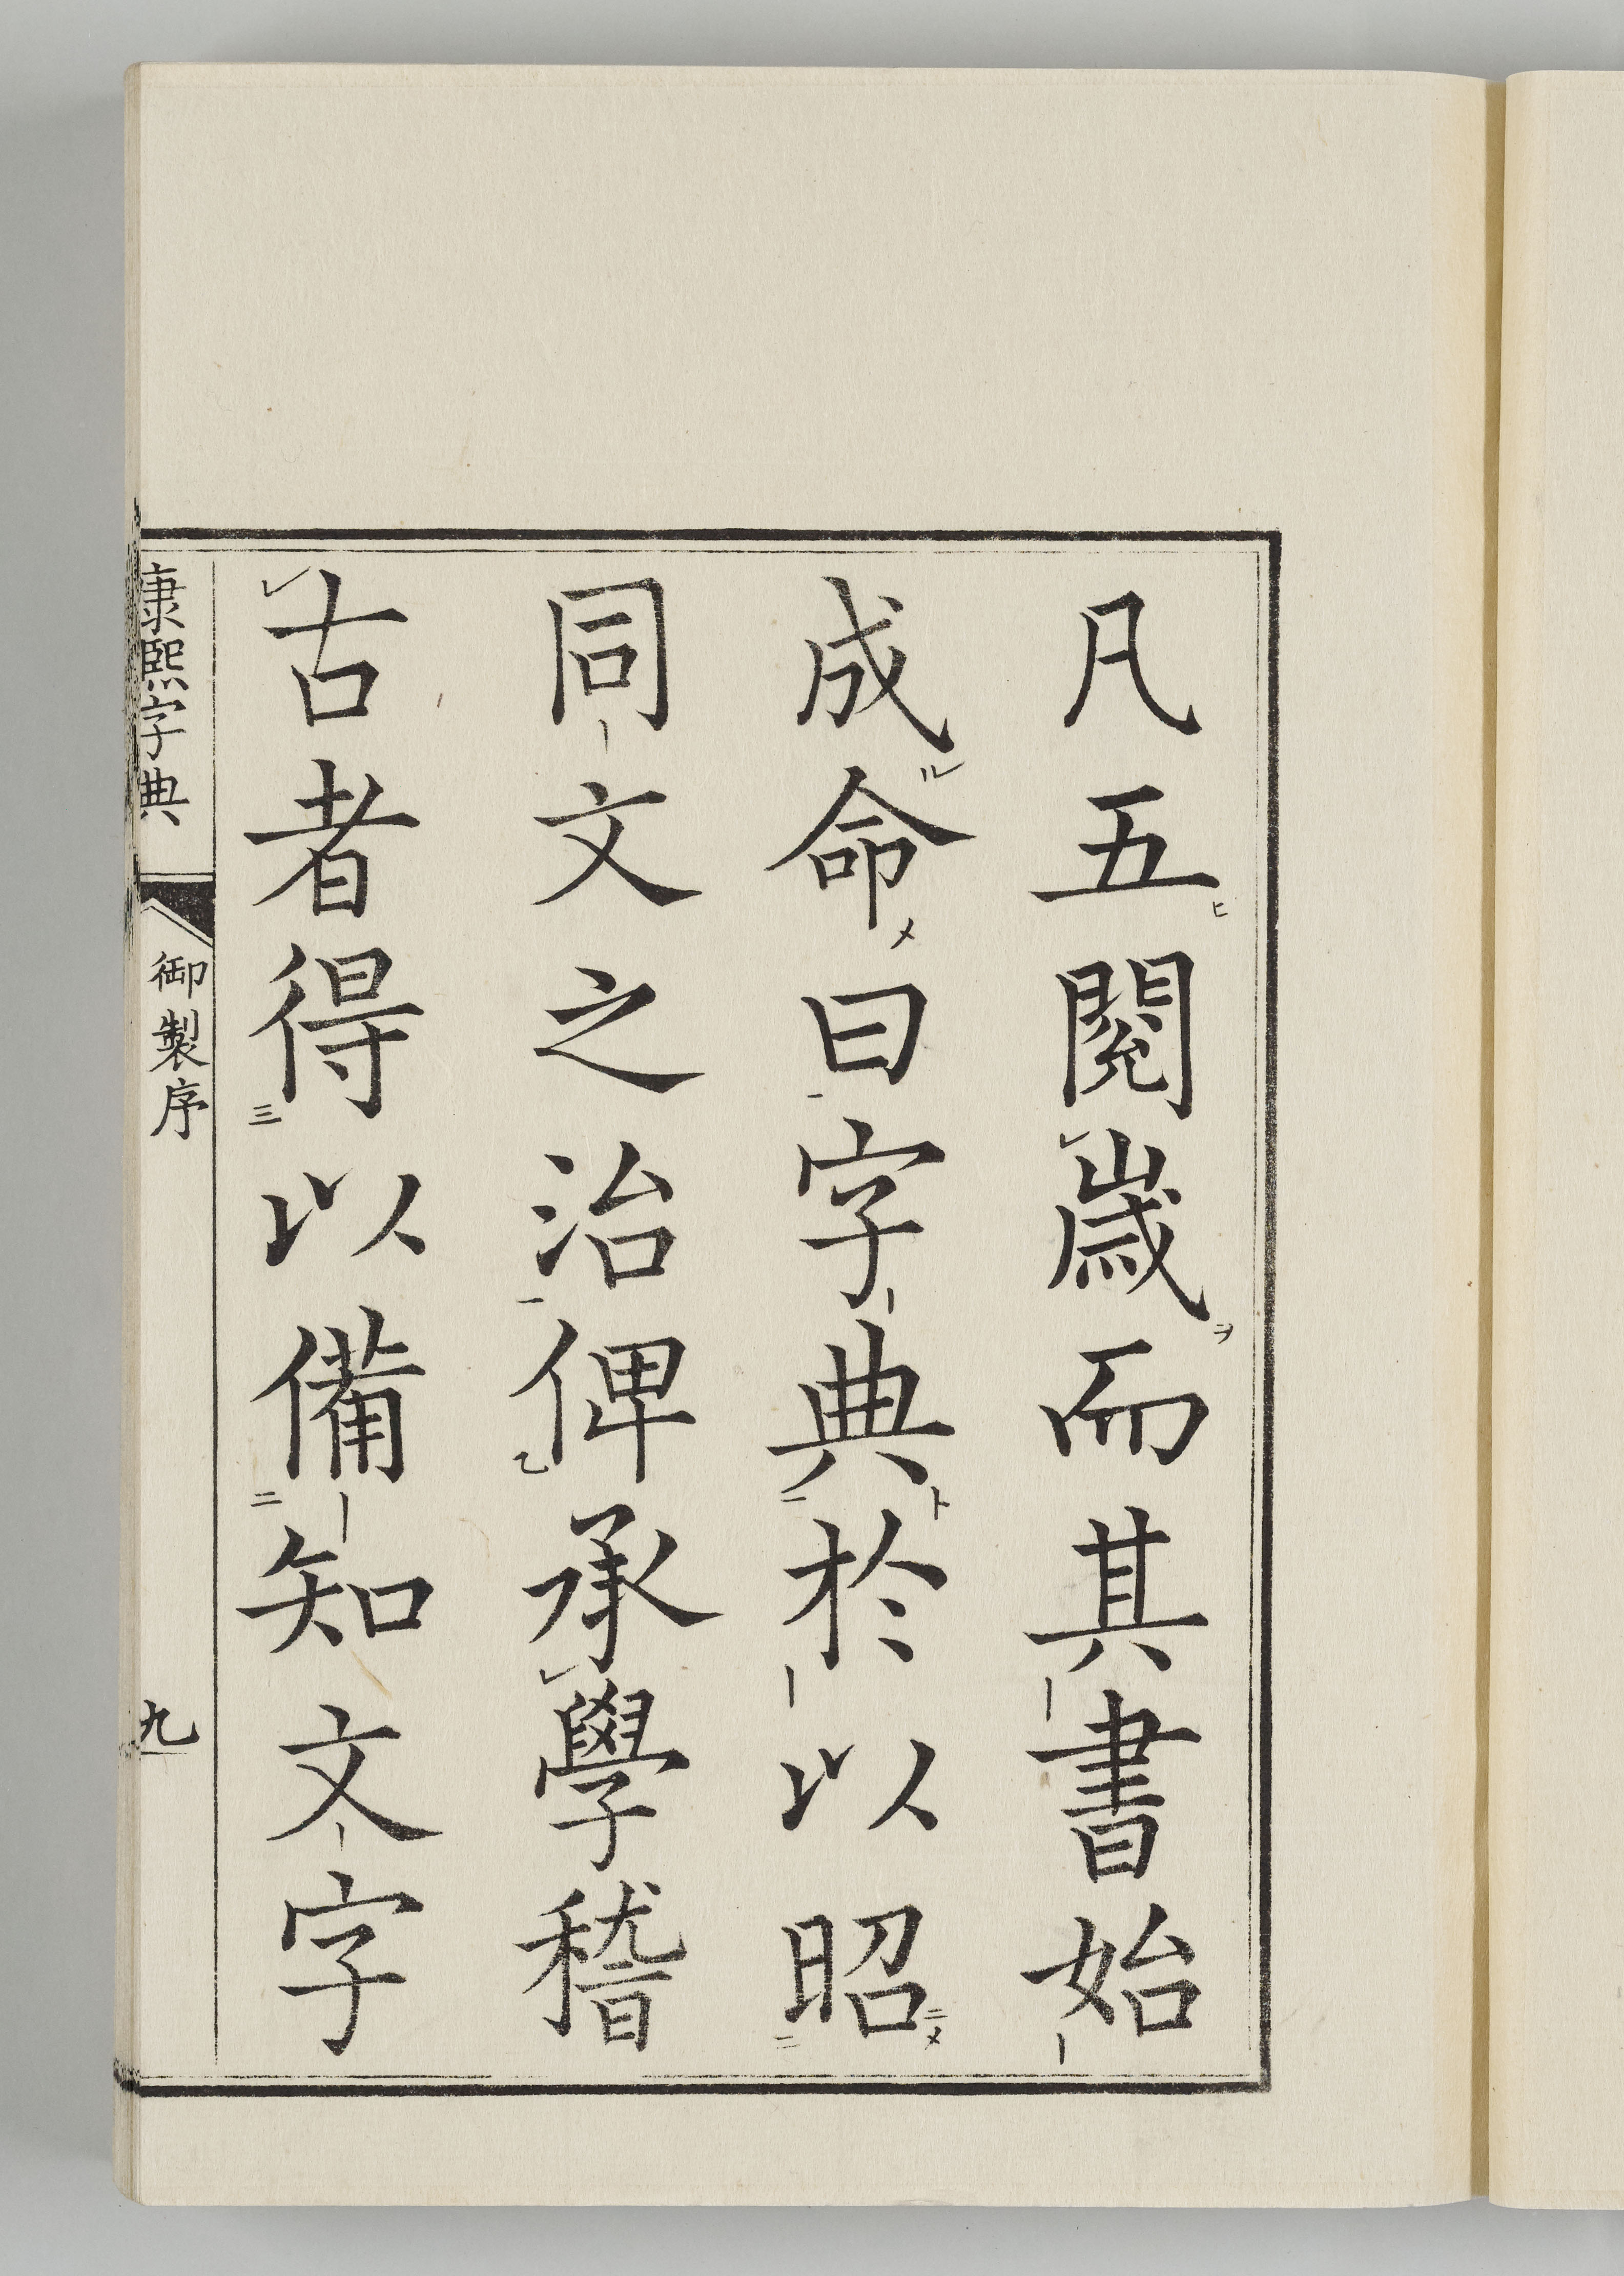 凡五閱歲而其書始
成命曰字典於以昭
同文之治俾承學稽
古者得以備知文字
康熙字典
御製序
九